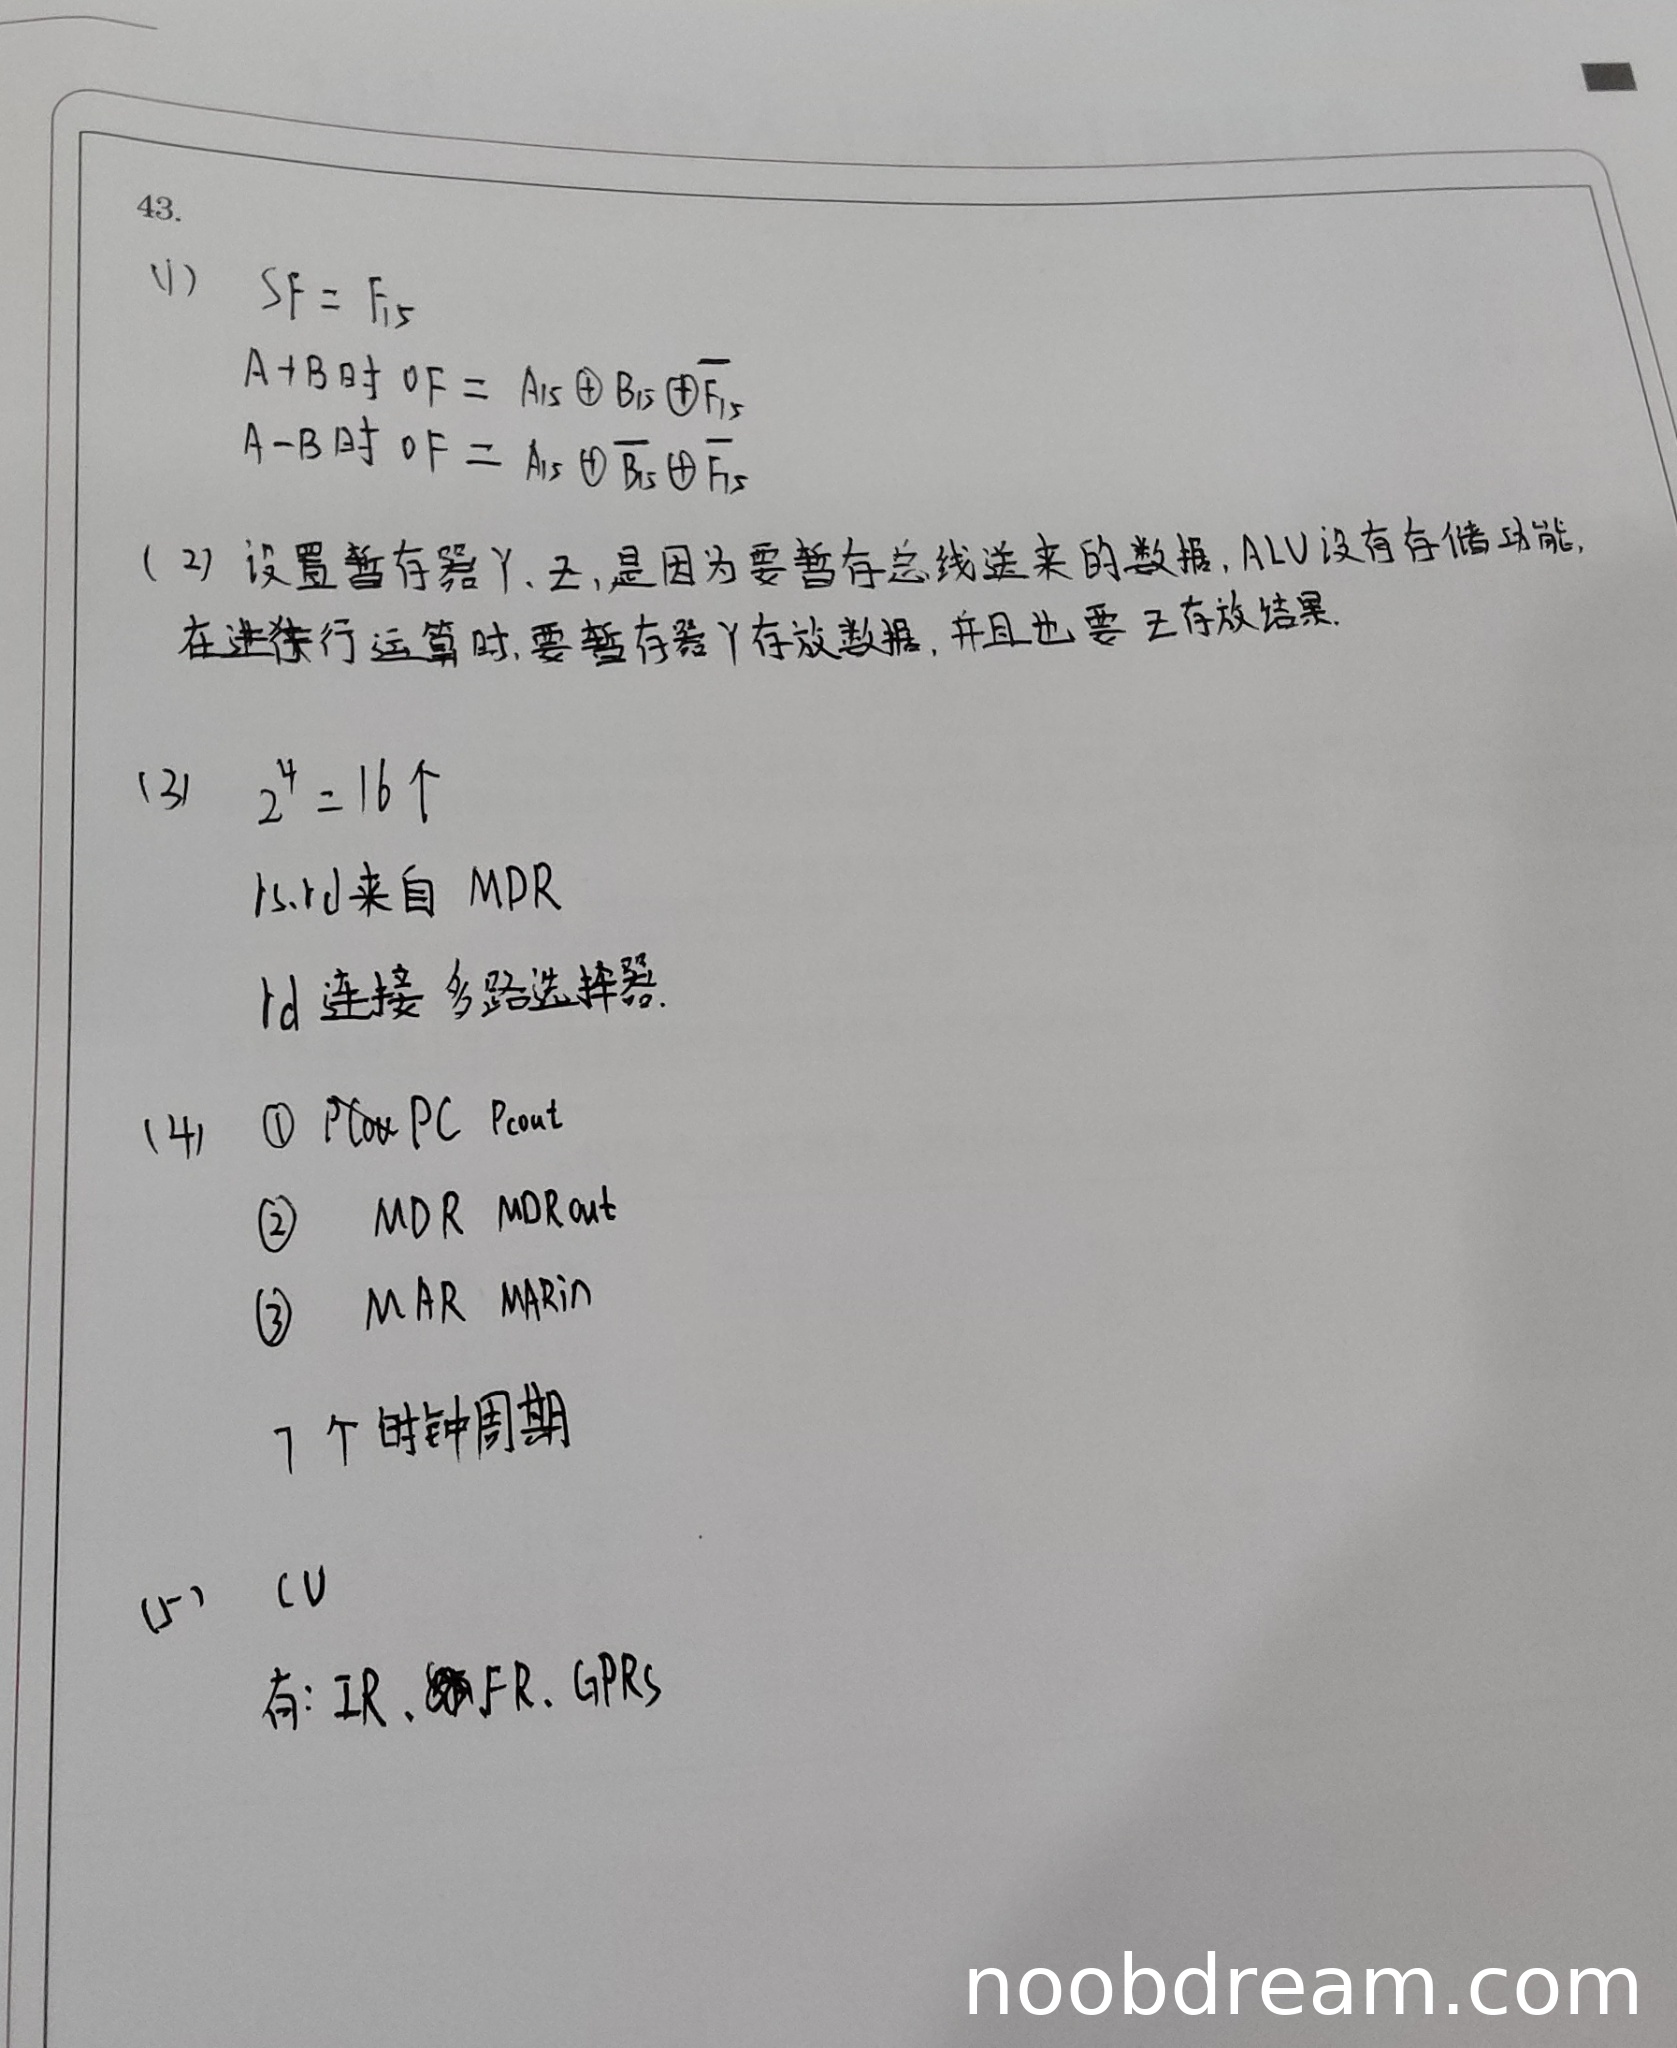 43.
(1) SF = F15
A+B时 OF = A15 ⊕ B15 ⊕ F̅15
A-B时 OF = A15 ⊕ B̅15 ⊕ F̅15
(2) 设置暂存器Y、Z,是因为要暂存总线送来的数据,ALU没有存储功能,
在进行运算时,要暂存器Y存放数据,并且也要Z存放结果.
(3) 2⁴ = 16个
rs.rd来自 MDR
rd 连接 多路选择器.
(4) ① PC Pcout
② MDR MDRout
③ MAR MARin
7个时钟周期
(5) CU
有: IR、FR、GPRs
noobdream.com